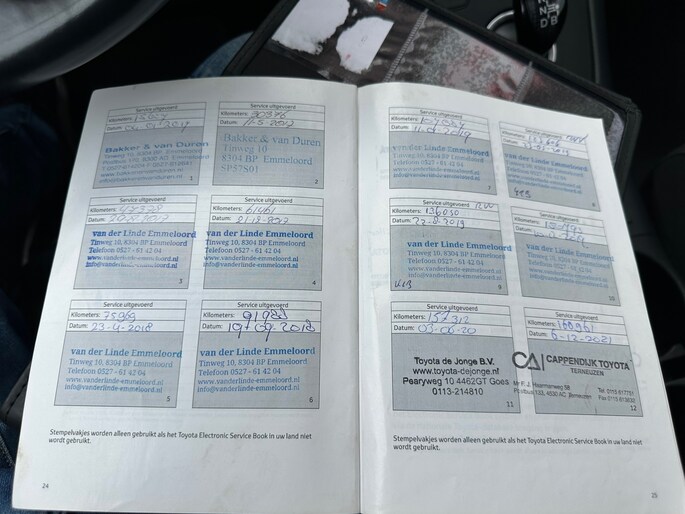 Service uitgevoerd
Kilometers:
Datum:
Bakker & van Duren
Tinweg 10,
1
Service uitgevoerd
Kilometers: 30376
Datum: 11-5-2017
Bakker & van Duren
Tinweg 10
8304 BP Emmeloord
SP57S01
2
Service uitgevoerd
Kilometers: 47328
Datum:
van der Linde Emmeloord
Tinweg 10, 8304 BP Emmeloord
Telefoon 0527 - 61 42 04
www.vanderlinde-emmeloord.nl
info@vanderlinde-emmeloord.nl
3
Service uitgevoerd
Kilometers: 61461
Datum:
van der Linde Emmeloord
Tinweg 10, 8304 BP Emmeloord
Telefoon 0527 - 61 42 04
www.vanderlinde-emmeloord.nl
info@vanderlinde-emmeloord.nl
4
Service uitgevoerd
Kilometers: 75969
Datum: 23-4-2018
van der Linde Emmeloord
Tinweg 10, 8304 BP Emmeloord
Telefoon 0527 - 61 42 04
www.vanderlinde-emmeloord.nl
info@vanderlinde-emmeloord.nl
5
Service uitgevoerd
Kilometers:
Datum: 19-09-2018
van der Linde Emmeloord
Tinweg 10, 8304 BP Emmeloord
Telefoon 0527 - 61 42 04
www.vanderlinde-emmeloord.nl
info@vanderlinde-emmeloord.nl
6
Stempelvakjes worden alleen gebruikt als het Toyota Electronic Service Book in uw land niet
wordt gebruikt.
24
Service uitgevoerd
Kilometers:
Datum:
van der Linde Emmeloord
Tinweg 10, 8304 BP Emmeloord
Telefoon 0527 - 61 42 04
www.vanderlinde-emmeloord.nl
info@vanderlinde-emmeloord.nl
7
Service uitgevoerd
Kilometers:
Datum:
van der Linde Emmeloord
Tinweg 10, 8304 BP Emmeloord
Telefoon 0527 - 61 42 04
www.vanderlinde-emmeloord.nl
info@vanderlinde-emmeloord.nl
8
Service uitgevoerd
Kilometers: 136030
Datum: 22-8-2019
van der Linde Emmeloord
Tinweg 10, 8304 BP Emmeloord
Telefoon 0527 - 61 42 04
www.vanderlinde-emmeloord.nl
info@vanderlinde-emmeloord.nl
9
Service uitgevoerd
Kilometers:
Datum:
van der Linde Emmeloord
Tinweg 10, 8304 BP Emmeloord
Telefoon 0527 - 61 42 04
www.vanderlinde-emmeloord.nl
info@vanderlinde-emmeloord.nl
10
Service uitgevoerd
Kilometers: 157312
Datum: 03-06-20
Toyota de Jonge B.V.
www.toyota-dejonge.nl
Pearyweg 10 4462GT Goes
0113-214810
11
Service uitgevoerd
Kilometers: 160961
Datum: 6-12-2021
CA CAPPENDIJK TOYOTA
TERNEUZEN
12
Stempelvakjes worden alleen gebruikt als het Toyota Electronic Service Book in uw land niet
wordt gebruikt.
25
N
D
B